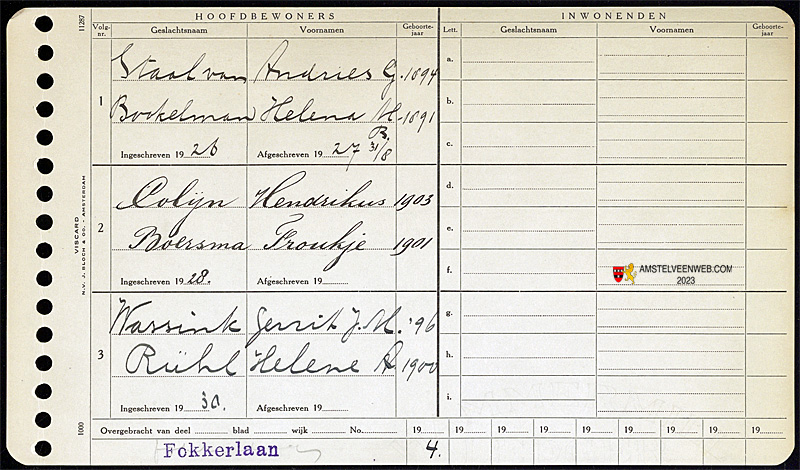 HOOFDBEWONERS INWONENDEN
11287
Volg-nr. Geslachtsnaam Voornamen Geboorte-jaar Lett. Geslachtsnaam Voornamen Geboorte-jaar
1
Staal van Andries G. 1894
Bockelman Helena M. 1891
B.
Ingeschreven 19 26 Afgeschreven 19 27 31/8
2
Colijn Hendrikus 1903
Boersma Froukje 1901
Ingeschreven 19 28. Afgeschreven 19
3
Wassink Gerrit J. M. '96
Rühl Helene A 1900
Ingeschreven 19 30. Afgeschreven 19
a.
b.
c.
d.
e.
f.
g.
h.
i.
AMSTELVEENWEB.COM
2023
VISCARD
N.V. J. BLOCH & CO., AMSTERDAM
1000
Overgebracht van deel blad wijk No. 19 19 19 19 19 19 19 19 19
Fokkerlaan 4.